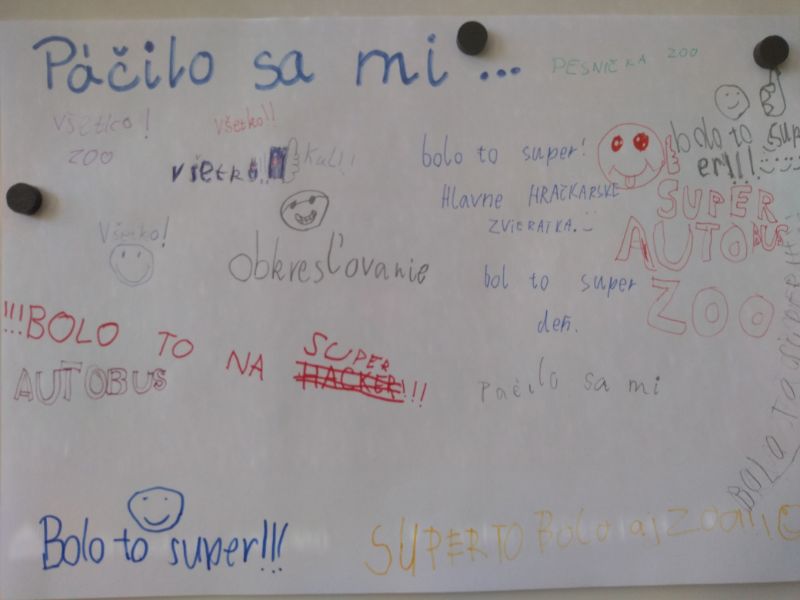 Páčilo sa mi ...
PESNIČKA ZOO
všetko!
ZOO
všetko!!
všetko!!!
Kul!!
bolo to super!
Hlavne HRAČKARSKE
ZVIERATKA.
bolo to sup
er!!!
SUPER
AUTOBUS
ZOO
Všetko!
obkresľovanie
bol to super
deň.
!!!BOLO TO NA SUPER HACKER!!!
AUTOBUS
Páčilo sa mi
BOLO TO super!!!
Bolo to super!!!
SUPER TO BOLO aj ZOO!!!